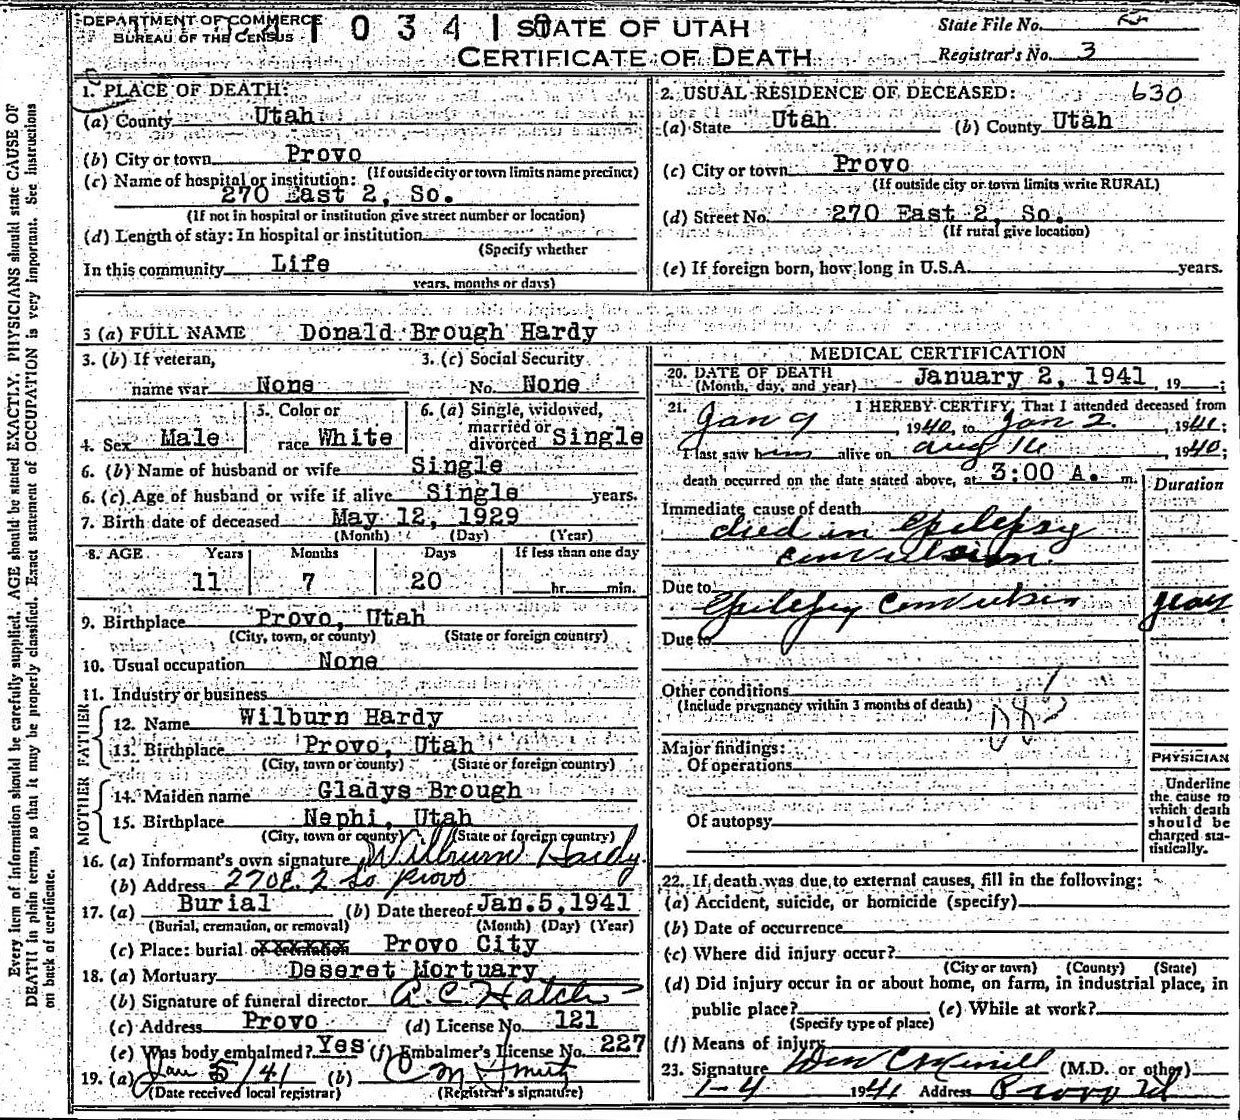 DEPARTMENT OF COMMERCE
BUREAU OF THE CENSUS
1 0 3 4 1
STATE OF UTAH
CERTIFICATE OF DEATH
State File No. 2
Registrar's No. 3
Every item of information should be carefully supplied. AGE should be stated EXACTLY. PHYSICIANS should state CAUSE OF
DEATH in plain terms, so that it may be properly classified. Exact statement of OCCUPATION is very important. See Instructions
on back of certificate.
1. PLACE OF DEATH:
(a) County Utah
(b) City or town Provo
(If outside city or town limits name precinct)
(c) Name of hospital or institution:
270 East 2, So.
(If not in hospital or institution give street number or location)
(d) Length of stay: In hospital or institution
(Specify whether
In this community Life
years, months or days)
2. USUAL RESIDENCE OF DECEASED: 630
(a) State Utah (b) County Utah
(c) City or town Provo
(If outside city or town limits write RURAL)
(d) Street No. 270 East 2, So.
(If rural give location)
(e) If foreign born, how long in U.S.A. years.
3 (a) FULL NAME Donald Brough Hardy
3. (b) If veteran, 3. (c) Social Security
name war None No. None
4. Sex Male 5. Color or race White 6. (a) Single, widowed, married or divorced Single
6. (b) Name of husband or wife Single
6. (c) Age of husband or wife if alive Single years.
7. Birth date of deceased May 12, 1929
(Month) (Day) (Year)
8. AGE Years Months Days If less than one day
11 7 20 hr. min.
9. Birthplace Provo, Utah
(City, town, or county) (State or foreign country)
10. Usual occupation None
11. Industry or business
FATHER
12. Name Wilburn Hardy
13. Birthplace Provo, Utah
(City, town or county) (State or foreign country)
MOTHER
14. Maiden name Gladys Brough
15. Birthplace Nephi, Utah
(City, town or county) (State or foreign country)
16. (a) Informant's own signature Wilburn Hardy
(b) Address 270 E. 2 So Provo
17. (a) Burial (b) Date thereof Jan. 5, 1941
(Burial, cremation, or removal) (Month) (Day) (Year)
(c) Place: burial or cremation Provo City
18. (a) Mortuary Deseret Mortuary
(b) Signature of funeral director A. C. Hatch
(c) Address Provo (d) License No. 121
(e) Was body embalmed? Yes (f) Embalmer's License No. 227
19. (a) Jan 5/41 (b)
(Date received local registrar) (Registrar's signature)
MEDICAL CERTIFICATION
20. DATE OF DEATH
(Month, day, and year) January 2, 1941, 19 ;
21. I HEREBY CERTIFY, That I attended deceased from
Jan 9 1940, to Jan 2, 1941;
I last saw him alive on Aug 16, 1940;
death occurred on the date stated above, at 3:00 A. m.
Duration
Immediate cause of death
died in Epilepsy
convulsion.
Due to
Epilepsy Convulsion years
Due to
Other conditions
(Include pregnancy within 3 months of death)
Major findings:
Of operations
Of autopsy
PHYSICIAN
Underline
the cause to
which death
should be
charged sta-
tistically.
22. If death was due to external causes, fill in the following:
(a) Accident, suicide, or homicide (specify)
(b) Date of occurrence
(c) Where did injury occur?
(City or town) (County) (State)
(d) Did injury occur in or about home, on farm, in industrial place, in
public place? (e) While at work?
(Specify type of place)
(f) Means of injury
23. Signature (M.D. or other)
1-4 1941 Address Provo Ut